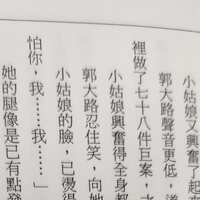 小姑娘又興奮了起來
郭大路聲音更低，道
裡做了七十八件巨案，
小姑娘興奮得全身都
郭大路忍住笑，向她
小姑娘的臉，已燙得
怕你，我……我……」
她的腿像是已有點發